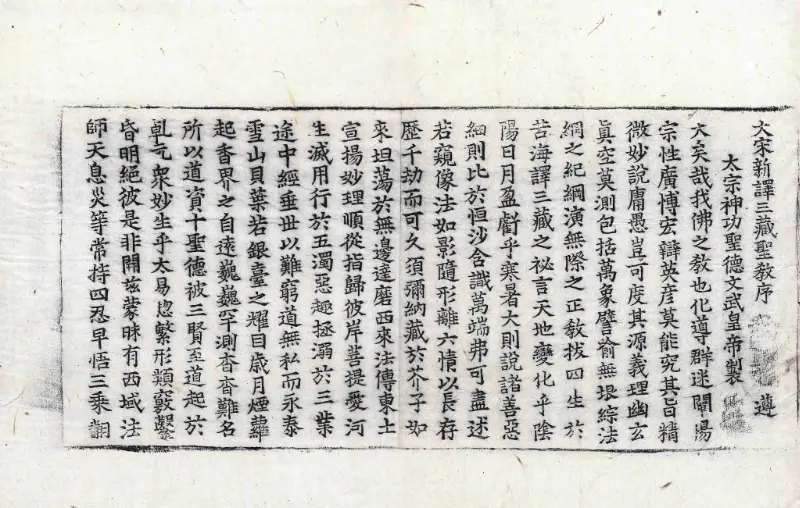 大宋新譯三藏聖教序 遵
太宗神功聖德文武皇帝製
大矣哉我佛之教也化導群迷闡揚
宗性廣博宏辯英彥莫能究其旨精
微妙說庸愚豈可度其源義理幽玄
真空莫測包括萬象譬喻無垠綜法
網之紀綱演無際之正教拔四生於
苦海譯三藏之祕言天地變化乎陰
陽日月盈虧乎寒暑大則說諸善惡
細則比於恒沙含識萬端弗可盡述
若窺像法如影隨形離六情以長存
歷千劫而可久須彌納藏於芥子如
來坦蕩於無邊達磨西來法傳東土
宣揚妙理順從指歸彼岸菩提愛河
生滅用行於五濁惡趣拯溺於三業
途中經垂世以難窮道無私而永泰
雪山貝葉若銀臺之耀日歲月煙蘿
起香界之自遠巍巍罕測杳杳難名
所以道資十聖德被三賢至道起於
乹元衆妙生乎太易惣繁形類竅鑿
昏明絕彼是非開茲蒙昧有西域法
師天息災等常持四忍早悟三乘翻